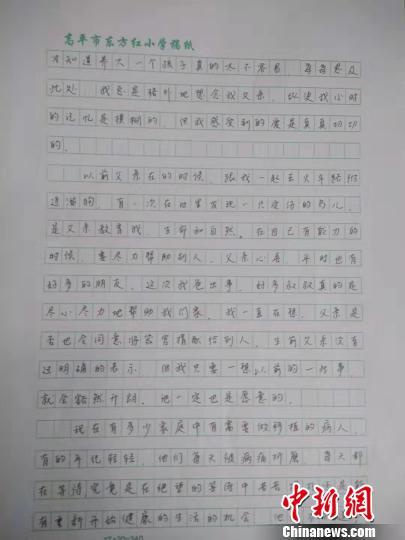 高平市东方红小学稿纸
才知道养大一个孩子真的太不容易，每每思及
此处，我总是格外地想念我父亲，纵使我小时
的记忆是模糊的，但我感受到的爱是真真切切
的。
以前父亲在的时候，跟我一起去火车路附
进溜狗，有一次在田里发现一只受伤的鸟儿，
是父亲教育我，生命和自然，在自己有能力的
时候，要尽力帮助别人，父亲心善，平时也有
好多的朋友，这次我爸出事，好多叔叔真的是
尽心尽力地帮助我们家，我一直在想，父亲是
否也会同意将器官捐献给别人，生前父亲没有
过明确的表示，但我只要一想以前的一些事，
就会豁然开朗，他一定也是愿意的。
现在有多少家庭中有需要做移植的病人，
有的年纪轻轻，他们每天被病痛折磨，每天都
在等待究竟是在绝望的等待中苦苦
有重新开始健康的生活的机会，他
中新网